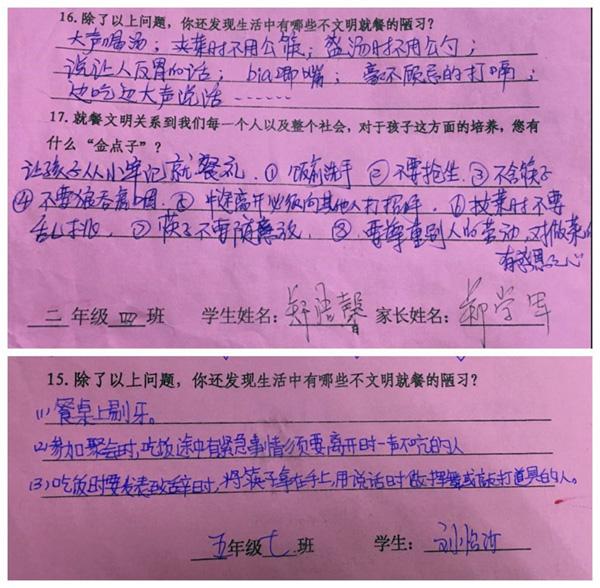 16. 除了以上问题，你还发现生活中有哪些不文明就餐的陋习？
大声喝汤；夹菜时不用公筷；盛汤时不用公勺；
说让人反胃的话；bia唧嘴；毫不顾忌的打嗝；
边吃边大声说话……
17. 就餐文明关系到我们每一个人以及整个社会，对于孩子这方面的培养，您有
什么“金点子”？
让孩子从小牢记就餐礼. ① 饭前洗手 ② 不要抢坐. ③ 不含筷子
④ 不要狼吞虎咽. ⑤ 中途离开必须向其他人打招呼. ⑥ 拨菜时不要
乱挑. ⑦ 筷子不要随意放. ⑧ 要尊重别人的劳动, 对做菜的
有感恩之心
二 年级 四 班 学生姓名: 馨 家长姓名: 郑学军
15. 除了以上问题，你还发现生活中有哪些不文明就餐的陋习？
(1) 餐桌上剔牙。
(2) 参加聚会时,吃饭途中有紧急事情须要离开时一声不吭的人
(3) 吃饭时要发表致辞时,将筷子拿在手上,用说话时做挥舞或敲打道具的人。
五 年级 七 班 学生: 刘